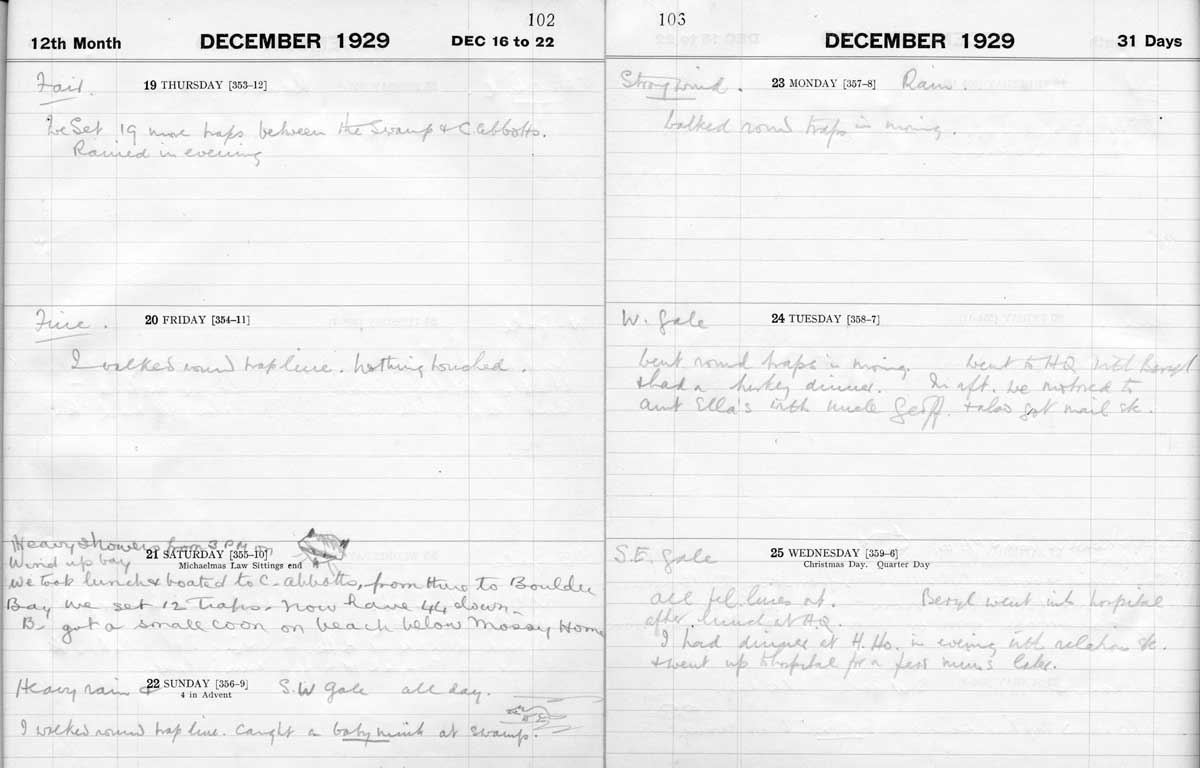 102
12th Month DECEMBER 1929 DEC 16 to 22
Fair. 19 THURSDAY [353–12]
We Set 19 more traps between the Swamp & C. abbotts.
Rained in evening
Fine. 20 FRIDAY [354–11]
I walked round trap line. Nothing touched.
Heavy showers 3 PM
21 SATURDAY [355–10]
Wind up bay Michaelmas Law Sittings end
We took lunch & boated to C. abbotts, from to Boulder
Bay we set 12 Traps. Now have 44 down.
B. got a small coon on beach below Mossy Home
Heavy rain & 22 SUNDAY [356–9] S.W gale all day.
4 in Advent
I walked round trap line. Caught a baby mink at Swamp.
103
DECEMBER 1929 31 Days
Strong wind. 23 MONDAY [357–8] Rain.
Walked round traps in morning.
W. Gale 24 TUESDAY [358–7]
Went round traps in morning. Went to HQ with Beryl
& had a turkey dinner. In aft. we motored to
aunt Ella's with uncle Geoff. & also got mail etc.
S.E. gale 25 WEDNESDAY [359–6]
Christmas Day. Quarter Day
all tel. lines out. Beryl went into hospital
after lunch at HQ.
I had dinner at H. Ho. in evening with relation etc.
& went up to hospital for a few mins later.